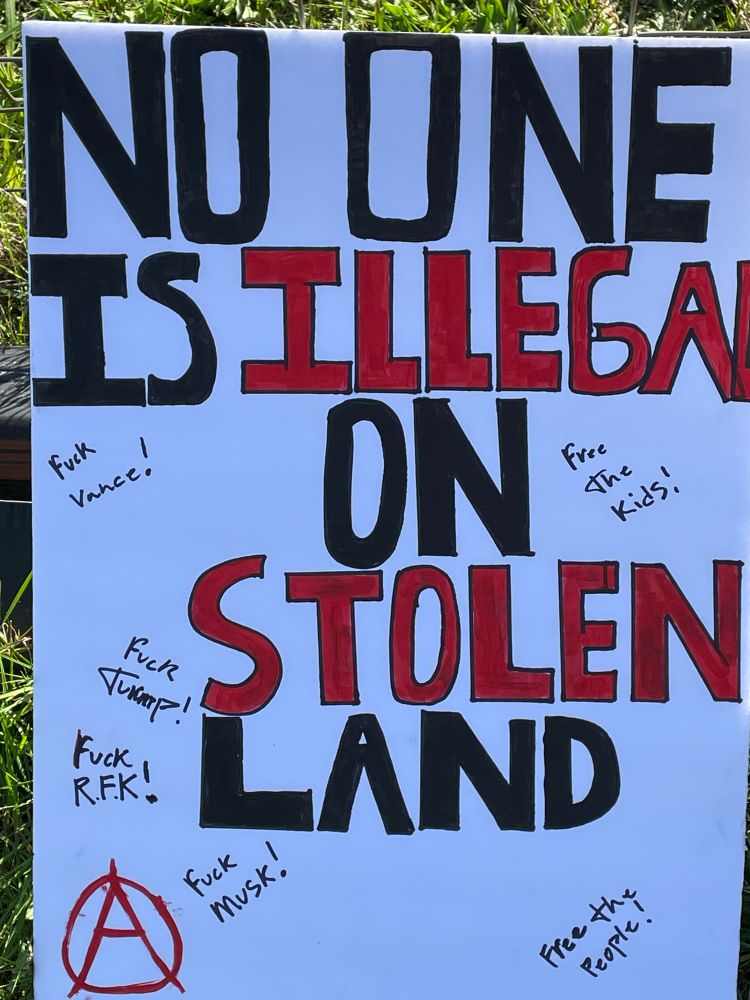 NO ONE
IS ILLEGAL
ON
Fuck
Vance!
Free
The
Kids!
STOLEN
Fuck
Trump!
LAND
Fuck
R.F.K!
Fuck
Musk!
A
Free the
People!